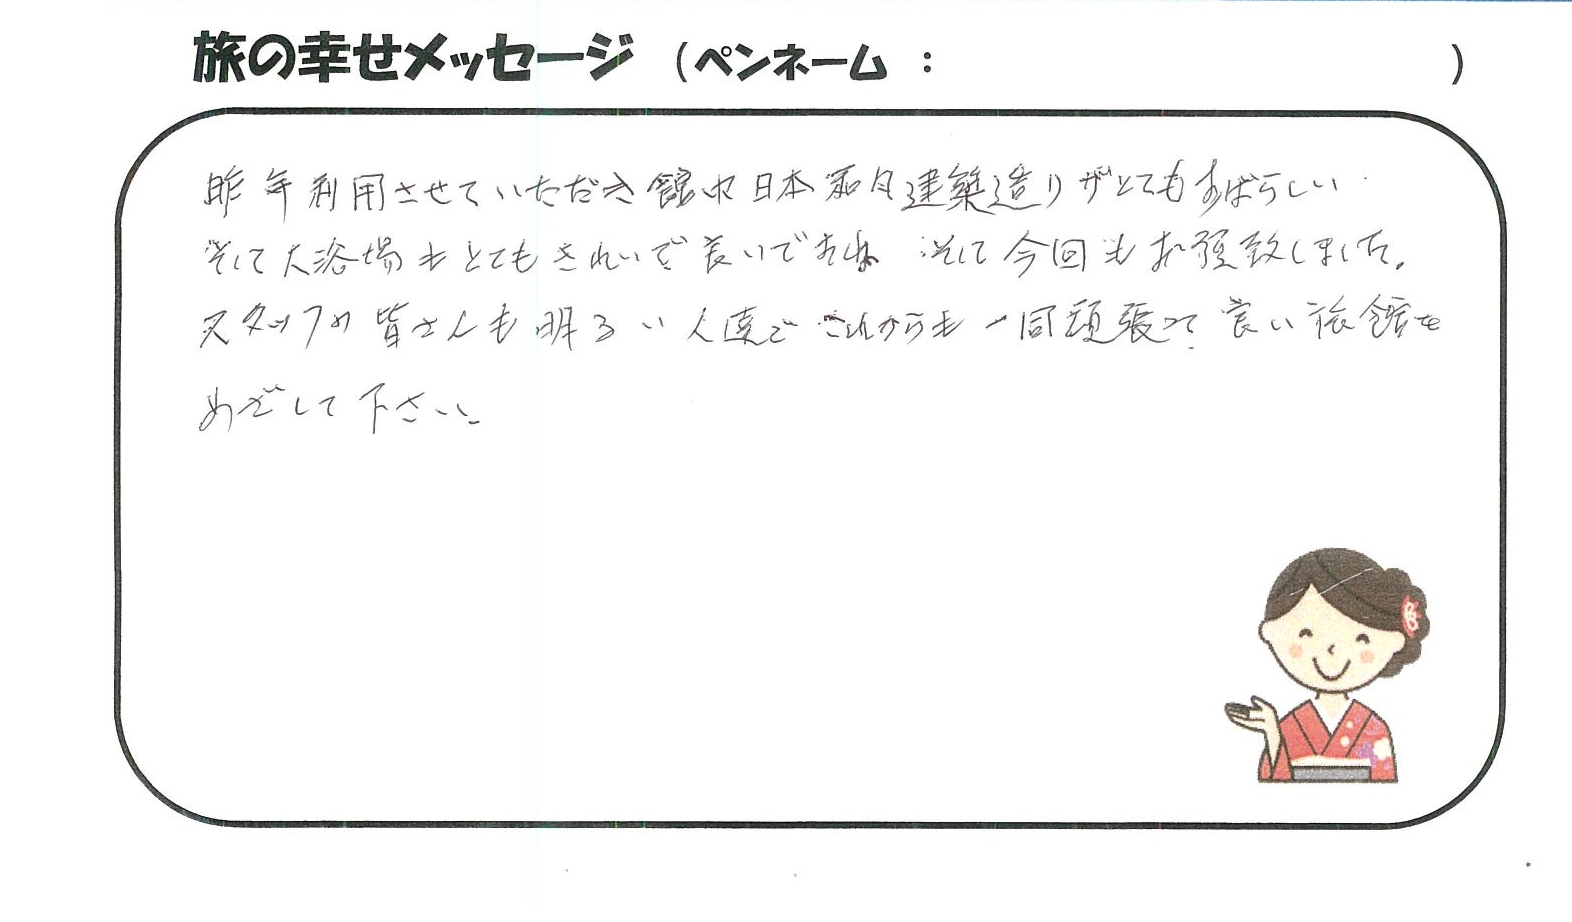 旅の幸せメッセージ (ペンネーム : )
昨年利用させていただき館内日本的建築造りがとてもすばらしい
そして大浴場もとてもきれいで良いですね そして今回もお願致しました。
スタッフの皆さんも明るい人達でこれからも一同頑張って良い旅館を
めざして下さい。